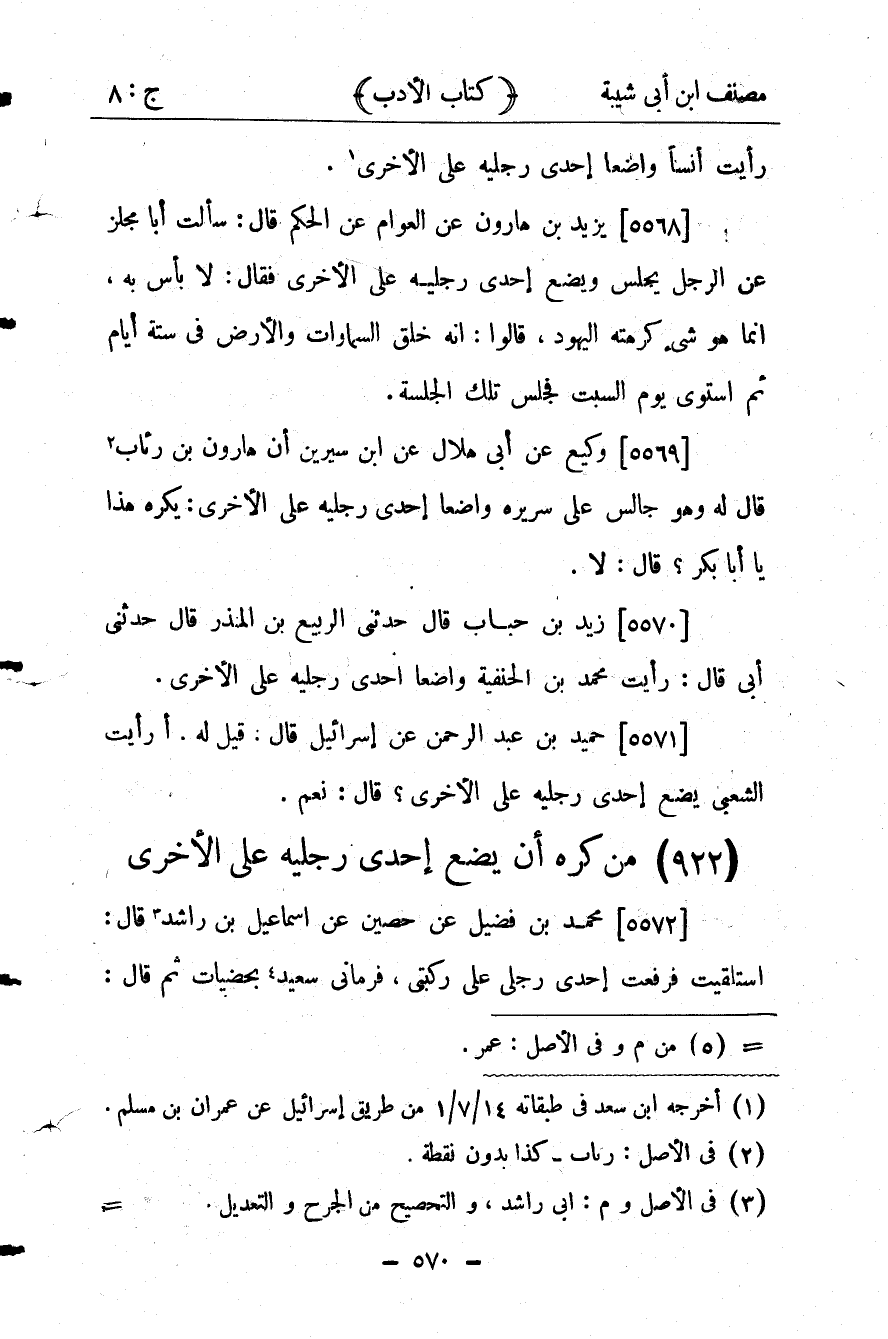 مصنف ابن أبى شيبة ﴿ كتاب الأدب ﴾ ج : ٨
رأيت أنساً واضعا إحدى رجليه على الأخرى١ .
[٥٥٦٨] يزيد بن هارون عن العوام عن الحكم قال : سألت أبا مجلز
عن الرجل يجلس ويضع إحدى رجليـه على الأخرى فقال : لا بأس به ،
انما هو شىء كرهته اليهود ، قالوا : انه خلق السماوات والأرض فى ستة أيام
ثم استوى يوم السبت فجلس تلك الجلسة .
[٥٥٦٩] وكيع عن أبى هلال عن ابن سيرين أن هارون بن رئاب٢
قال له وهو جالس على سريره واضعا إحدى رجليه على الأخرى : يكره هذا
يا أبا بكر ؟ قال : لا .
[٥٥٧٠] زيد بن حبـاب قال حدثنى الربيع بن المنذر قال حدثنى
أبى قال : رأيت محمد بن الحنفية واضعا احدى رجليه على الأخرى .
[٥٥٧١] حميد بن عبد الرحمن عن إسرائيل قال : قيل له . أ رأيت
الشعبى يضع إحدى رجليه على الأخرى ؟ قال : نعم .
(٩٢٢) من كره أن يضع إحدى رجليه على الأخرى
[٥٥٧٢] محمـد بن فضيل عن حصين عن اسماعيل بن راشد٣ قال :
استلقيت فرفعت إحدى رجلى على ركبتى ، فرمانى سعيد٤ بحضيات ثم قال :
= (٥) من م و فى الأصل : عمر .
(١) أخرجه ابن سعد فى طبقاته ١/٧/١٤ من طريق إسرائيل عن عمران بن مسلم .
(٢) فى الأصل : رىاب ـ كذا بدون نقطة .
(٣) فى الأصل و م : ابى راشد ، و التحصيح من الجرح و التعديل . =
– ٥٧٠ –